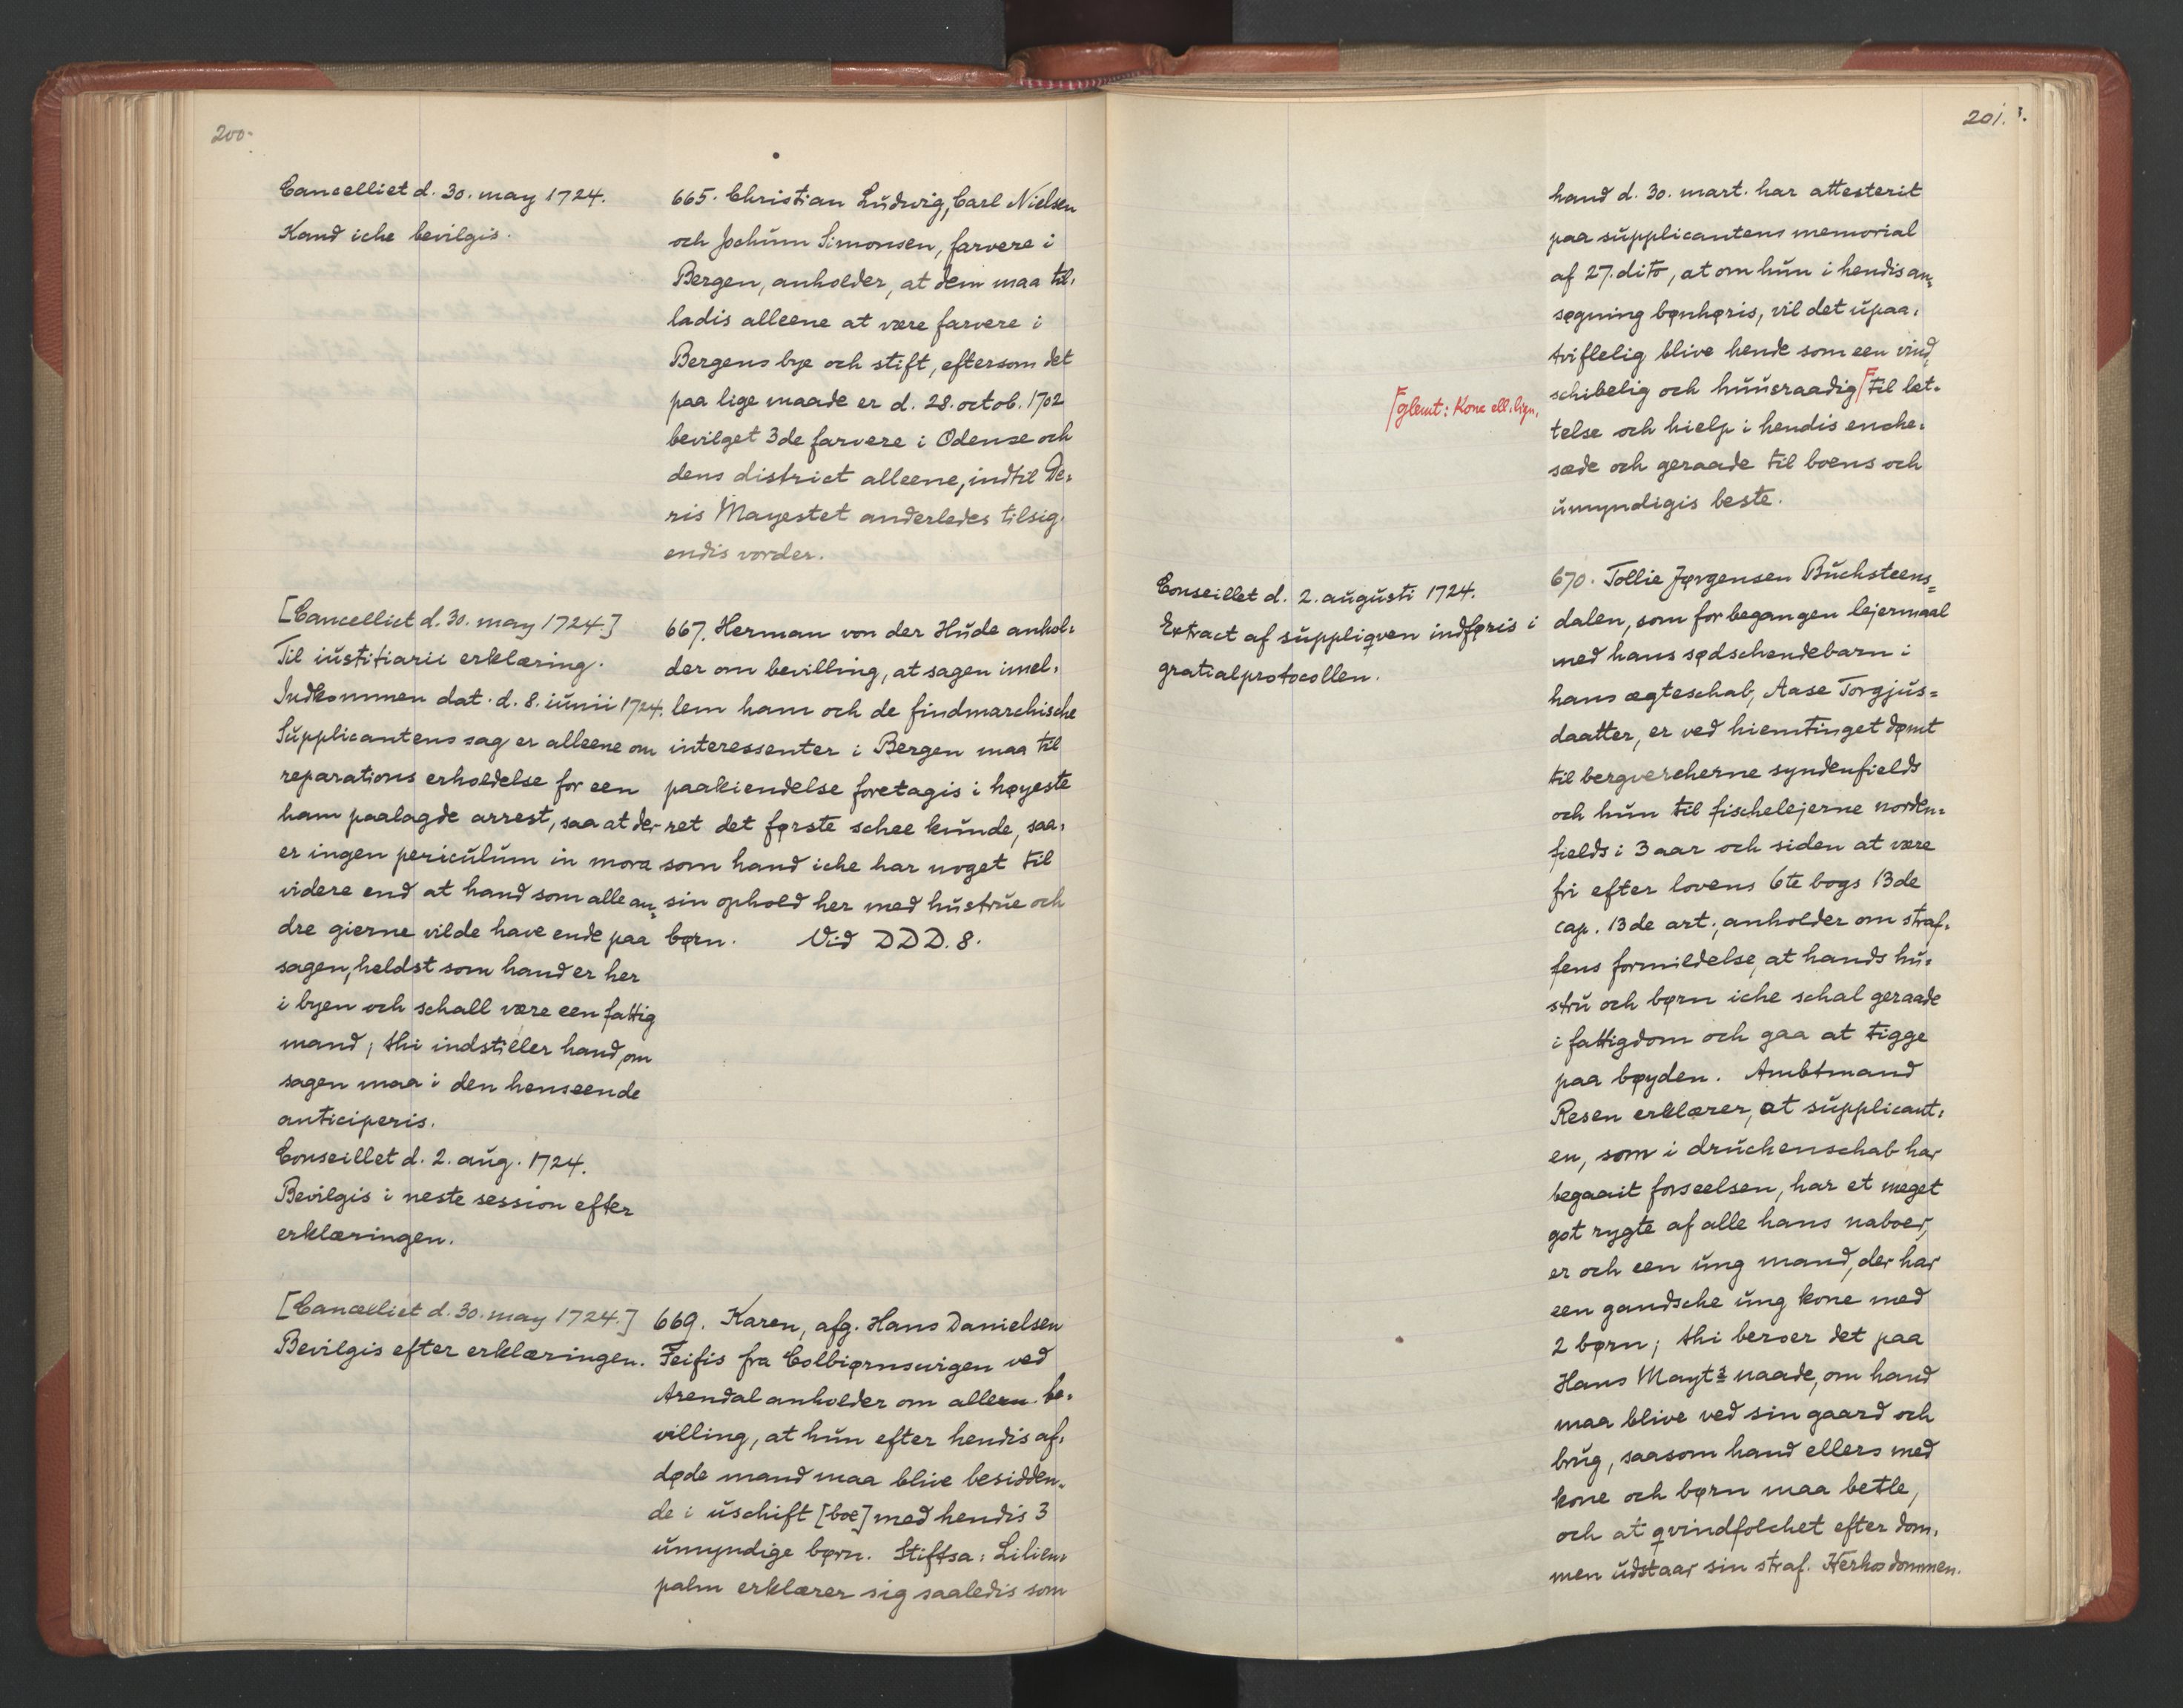 200.
Cancelliet d. 30. may 1724.
Kand iche bevilgis.
665. Christian Ludwig, Carl Nielsen
och Jochum Simonsen, farvere i
Bergen, anholder, at dem maa til,
ladis alleene at være farvere i
Bergens bye och stift, eftersom det
paa lige maade er d. 28. octob. 1702
bevilget 3de farvere i Odense och
dens district alleene, indtil De,
ris Mayestet anderledes tilsig,
endis vorder.
[Cancelliet d. 30. may 1724]
Til iustitiarii erklæring.
Indkommen dat. d. 8. iunii 1724.
Supplicantens sag er alleene om
reparations erholdelse for een
ham paalagde arrest, saa at der
er ingen periculum in mora
videre end at hand som alle an,
dre gierne vilde have ende paa
sagen, heldst som hand er her
i byen och schall være een fattig
mand; thi indstiller hand, om
sagen maa i den henseende
anticiperis.
Conseillet d. 2. aug. 1724.
Bevilgis i neste session efter
erklæringen.
667. Herman von der Hude anhol,
der om bevilling, at sagen imel,
lem ham och de findmarchische
interessenter i Bergen maa til
paakiendelse foretagis i høyeste
ret det første schee kunde, saa,
som hand iche har noget til
sin ophold her med hustrue och
børn. Vid DDD. 8.
[Cancelliet d. 30. may 1724.]
Bevilgis efter erklæringen.
669. Karen, afg. Hans Danielsen
Feifis fra Colbiørnsvigen ved
Arendal anholder om allern. be,
villing, at hun efter hendis af,
døde mand maa blive besidden,
de i uschift [boe] med hendis 3
umyndige børn. Stiftsa: Lilien,
palm erklærer sig saaledis som
201.
hand d. 30. mart. har attesterit
paa supplicantens memorial
af 27. dito, at om hun i hendis an,
søgning bønhøris, vil det upaa,
tviflelig blive hende som een vind,
schibelig och huusraadig ┌ til let,
telse och hielp i hendis enche,
sæde och geraade til boens och
umyndigis beste.
┌ glemt: Kone ell. lign.
Conseillet d. 2. augusti 1724.
Extract af suppliqven indføris i
gratialprotocollen.
670. Tollie Jørgensen Buchsteens=
dalen, som for begangen lejermaal
med hans sødschendebarn i
hans ægteschab, Aase Torgjus=
daatter, er ved hiemtinget dømt
til bergvercherne syndenfields
och hun til fischelejerne norden,
fields i 3 aar och siden at være
fri efter lovens 6te bogs 13de
cap. 13de art., anholder om straf,
fens formildelse, at hands hu,
stru och børn iche schal geraade
i fattigdom och gaa at tigge
paa bøyden. Ambtmand
Resen erklærer, at supplicant,
en, som i druchenschab har
begaait forseelsen, har et meget
got rygte af alle hans naboer,
er och een ung mand, der har
een gandsche ung kone med
2 børn; thi beroer det paa
Hans Mayts naade, om hand
maa blive ved sin gaard och
brug, saasom hand ellers med
kone och børn maa betle,
och at qvindfolchet efter dom,
men udstaar sin straf. Herhos dommen.